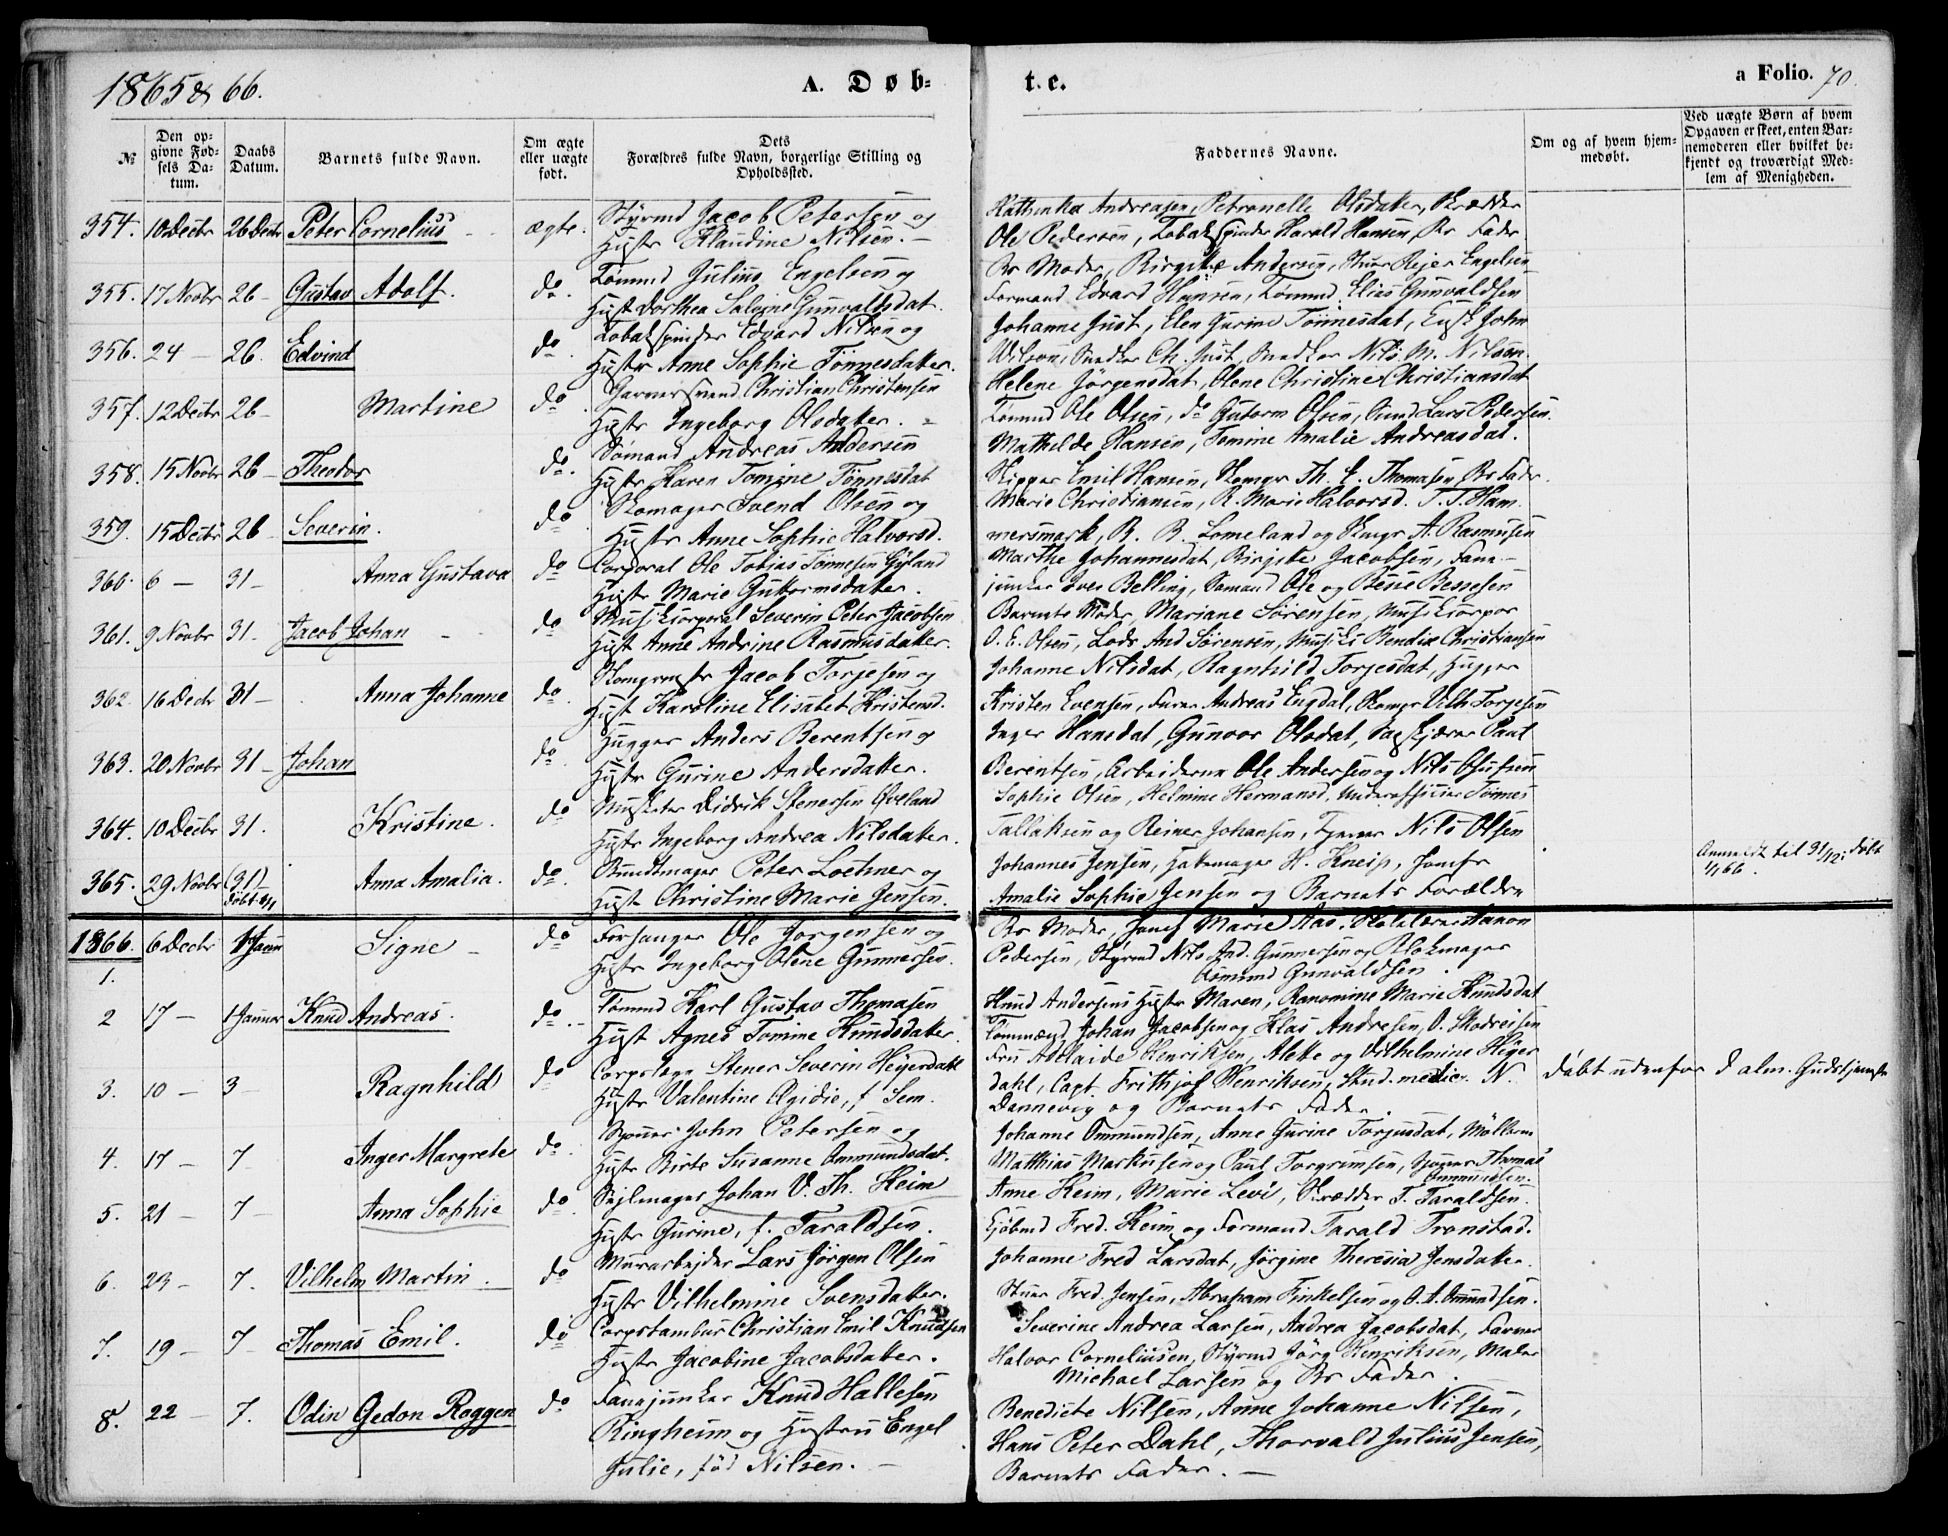 1865 & 66.
A. Døb-
t. e.
a Folio. 70.
№
Den opgivne Fødsels Datum.
Daabs Datum.
Barnets fulde Navn.
Om ægte eller uægte født.
Dets Forældres fulde Navn, borgerlige Stilling og Opholdssted.
Faddernes Navne.
Om og af hvem hjemmedøbt.
Ved uægte Børn af hvem Opgaven er skeet, enten Barnemoderen eller hvilket bekjendt og troværdigt Medlem af Menigheden.
354. 10 Decbr 26 Decbr Peter Cornelius ægte. Styrmd Jacob Petersen og
Hustr Klaudine Nilsen.
Kathinka Andreasen, Petronelle Olsdatter, Skrædder
Ole Pedersen, Tobakspinder Harald Hansen, Bs Fader
355. 17 Novbr 26 Gustav Adolf. do. Tømmd Julius Engelsen og
Hust Dorthea Salomine Gunvaldsdat.
Bs Moder, Birgitte Andersen, Reier Engelsen
Formand Edvard Hansen, Tømmd Elias Gunvaldsen
356. 24 26. Edvind do. Tobakspinder Edvard Nilsen og
Hustr Anne Sophie Tønnesdatter.
Johanne Just, Elen Gurine Tønnesdat, John
Wilson, Snedker Ch. Just, Snedker Nils M. Nilsen.
357. 12 Decbr 26 Martine do Garversvend Christian Christensen
Hustr Ingeborg Olsdatter.
Helene Jørgensdat, Olene Christine Christiansdat
Tømmd Ole Olsen, do Gutorm Olsen, Lars Pedersen.
358. 15 Novbr 26 Theodor do. Sømand Andreas Andersen
Hustr Karen Tomine Tønnesdat
Mathilde Hansen, Tomine Amalie Andreasdat.
Skipper Emil Hansen, Skomgr Th. E. Thomasen Bs Fader.
359. 15 Decbr 26 Severin. do Skomager Svend Olsen og
Hustr Anne Sophie Halvorsd.
Marie Christiansen, R. Marie Halvorsd. T. T. Ham
mersmark, B. B. Lomeland og Skmgr A. Rasmusen
360. 6 31 Anna Gustava do Corporal Ole Tobias Tønnesen Gyland
Hustr Marie Guttormsdatter.
Marthe Johannesdat, Birgitte Jacobsen, Fane-
junker Iver Belling, Sømand Ole og Besse Bessesen
361. 9 Novbr 31. Jacob Johan do Musikcorporal Severin Peter Jacobsen
Hust Anne Andrine Rasmusdatter.
Barnets Moder, Mariane Sørensen, Musikcorpor
O. E. Olsen, Lods And Sørensen, Bendix Christiansen
362. 16 Decbr 31 Anna Johanne do Skomgrmstr Jacob Torjesen og
Hust Karoline Elisabet Kristensd.
Johanne Nilsdat, Ragnhild Torjesdat, Hugger
Kristen Evensen, Furer Andreas Engdal, Skomgr Vilh Torjesen
363. 20 Novbr 31 Johan do Hugger Anders Berentsen og
Hustr Gurine Andersdatter.
Inger Hansdat, Gunvor Olsdat, Sagskjærer Paul
Berentsen, Arbeiderne Ole Andersen og Nils Olsen
364. 10 Decbr 31. Kristine. do Musketer Didrik Stenersen Øveland
Hustr Ingeborg Andrea Nilsdatter.
Sophie Olsen, Helmine Hermansd, Underofficier Tønnes
Tallaksen og Reiner Johansen, Tjener Nils Olsen
365. 29 Novbr (31) Døbt 1/1 Anna Amalia. do. Bundtmager Peter Lochner og
Hust Christine Marie Jensen.
Johannes Jensen, Hattemager H. Kneip, Jomfr
Amalie Sophie Jensen og Barnets Forældre
Anmeldt til 31/12; døbt
1/1 66.
1866. 6 Decbr 1 Januar Signe do Forsanger Ole Jørgensen og
1. Hustr Ingeborg Olene Gunnersen.
Bs Moder, Jomf Marie Aas, Skolelærer Aanon
Pedersen, Styrmd Nils And. Gunnersen og Blokmager
Osmund Gunvaldsen.
2 17 1 Januar Knud Andreas. do Tømmd Karl Gustav Thomasen
Hust Agnes Tomine Knudsdatter.
Knud Andersens Hustr Maren, Ranomine Marie Knudsdat
Tømmænd Johan Jacobsen og Klas Andresen, O. Skodveisen
3. 10 3 Ragnhild do Corpslæge Stener Severin Heyerdahl
Hustr Valentine Ægidie, f Sem.
Fru Adelaide Henriksen, Alette og Vilhelmine Heyer
dahl, Capt. Frithjof Henriksen, Stud. medic. N.
Dannevig og Barnets Fader.
døbt udenfor d alm. Gudstjeneste
4. 17 7 Inger Margrete do. John Petersen og
Hustr Birte Susanne Ommundsdat.
Johanne Ommundsen, Anne Gurine Torjusdat, Møllers
Matthias Markusen og Paul Torgrimsen, Thomas
Ommundsen.
5. 21 7 Anna Sophie do. Sejlmager Johan V. Th. Keim
Hustr Gurine, f. Taraldsen.
Anne Keim, Marie Levi, Skrædder T. Taraldsen.
Kjøbmd Fred. Keim og Formand Tarald Tronstad.
6. 23 7. Vilhelm Martin. do Murarbejder Lars Jørgen Olsen
Hustr Vilhelmine Svensdatter.
Johanne Fred Larsdat, Jørgine Theresia Jensdatter.
Fred. Jensen, Abraham Finkelsen og O. A. Omundsen.
7. 19 7 Thomas Emil. do Corpstambur Christian Emil Knudsen
Hustr Jacobine Jacobsdatter.
Severine Andrea Larsen, Andrea Jacobsdat, Farver
Halvor Corneliusen, Styrmd Jörg Henriksen, Maler
Michael Larsen og Bs Fader.
8. 22 7. Odin Gedon Roggen do Fanejunker Knud Hallesen
Ringheim og Hustru Engel
Julie, fød Nilsen.
Benedicte Nilsen, Anne Johanne Nilsen,
Hans Peter Dahl, Thorvald Julius Jensen,
Barnets Fader.